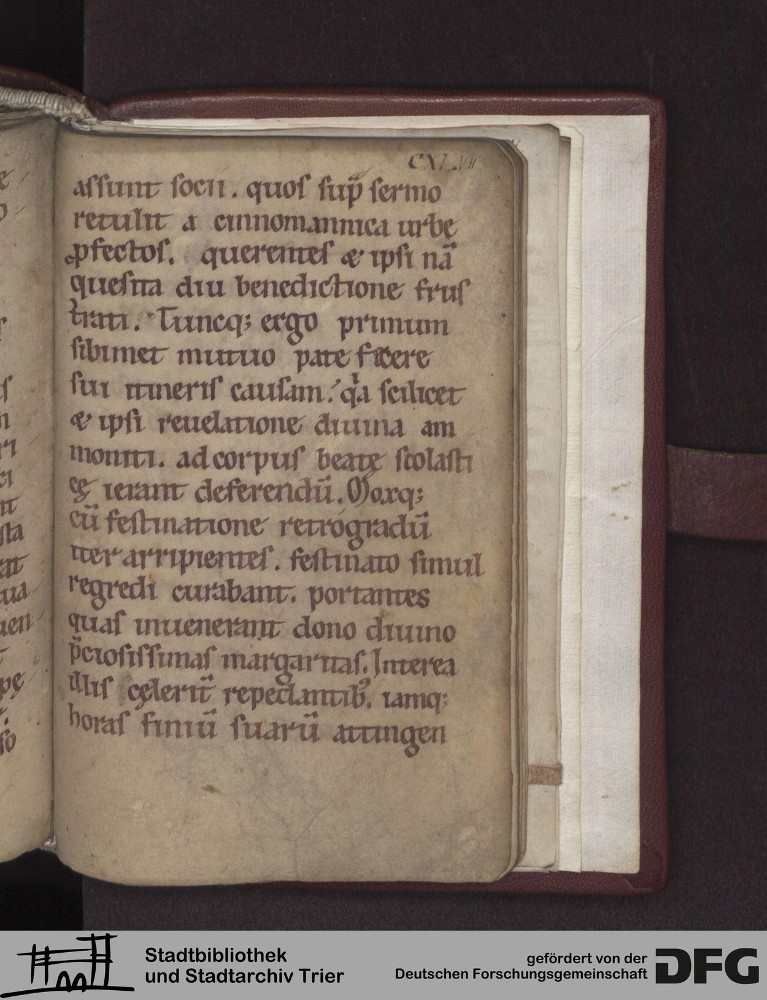 assunt socii. quos sup̄ sermo
retulit a cinnomannica urbe
ꝓfectos. querentes & ipsi nā
quesita diu benedictione frus
trati. Tuncq; ergo primum
sibimet mutuo pate facere
sui itineris causam. qa scilicet
& ipsi reuelatione diuina am
moniti. ad corpus beatę scolasti
cę ierant deferendū. Moxq;
cū festinatione retrogradū
iter arripientes. festinato simul
regredi curabant. portantes
quas inuenerant dono diuino
p̄ciosissimas margaritas. Interea
illis cęlerit̄ repedantib;. iamq;
horas finiū suarū attingen
Stadtbibliothek
und Stadtarchiv Trier
gefördert von der
Deutschen Forschungsgemeinschaft
DFG